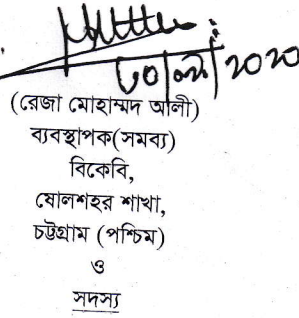 (রেজা মোহাম্মদ আলী)
ব্যবস্থাপক(সমব্য)
বিকেবি,
ষোলশহর শাখা,
চট্টগ্রাম (পশ্চিম)
ও
সদস্য